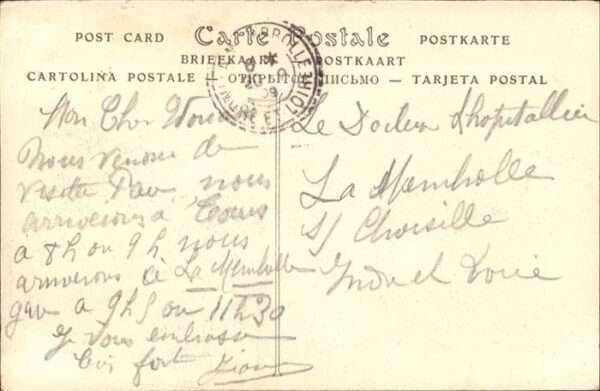 POST CARD Carte Postale POSTKARTE
BRIEFKAART POSTKAART
CARTOLINA POSTALE — ОТКРЫТОЕ ПИСЬМО — TARJETA POSTAL
INDRE ET LOIRE
09
Mon Cher
Nous venons de
visiter Pau nous
arriverons à Tours
a 8h ou 9h nous
arriverons à La Membrolle
gare a 9h ou 11h30
Je vous embrasse
bien fort
Le Docteur Lhopitallier
La Membrolle
S/ Choisille
Indre et Loire